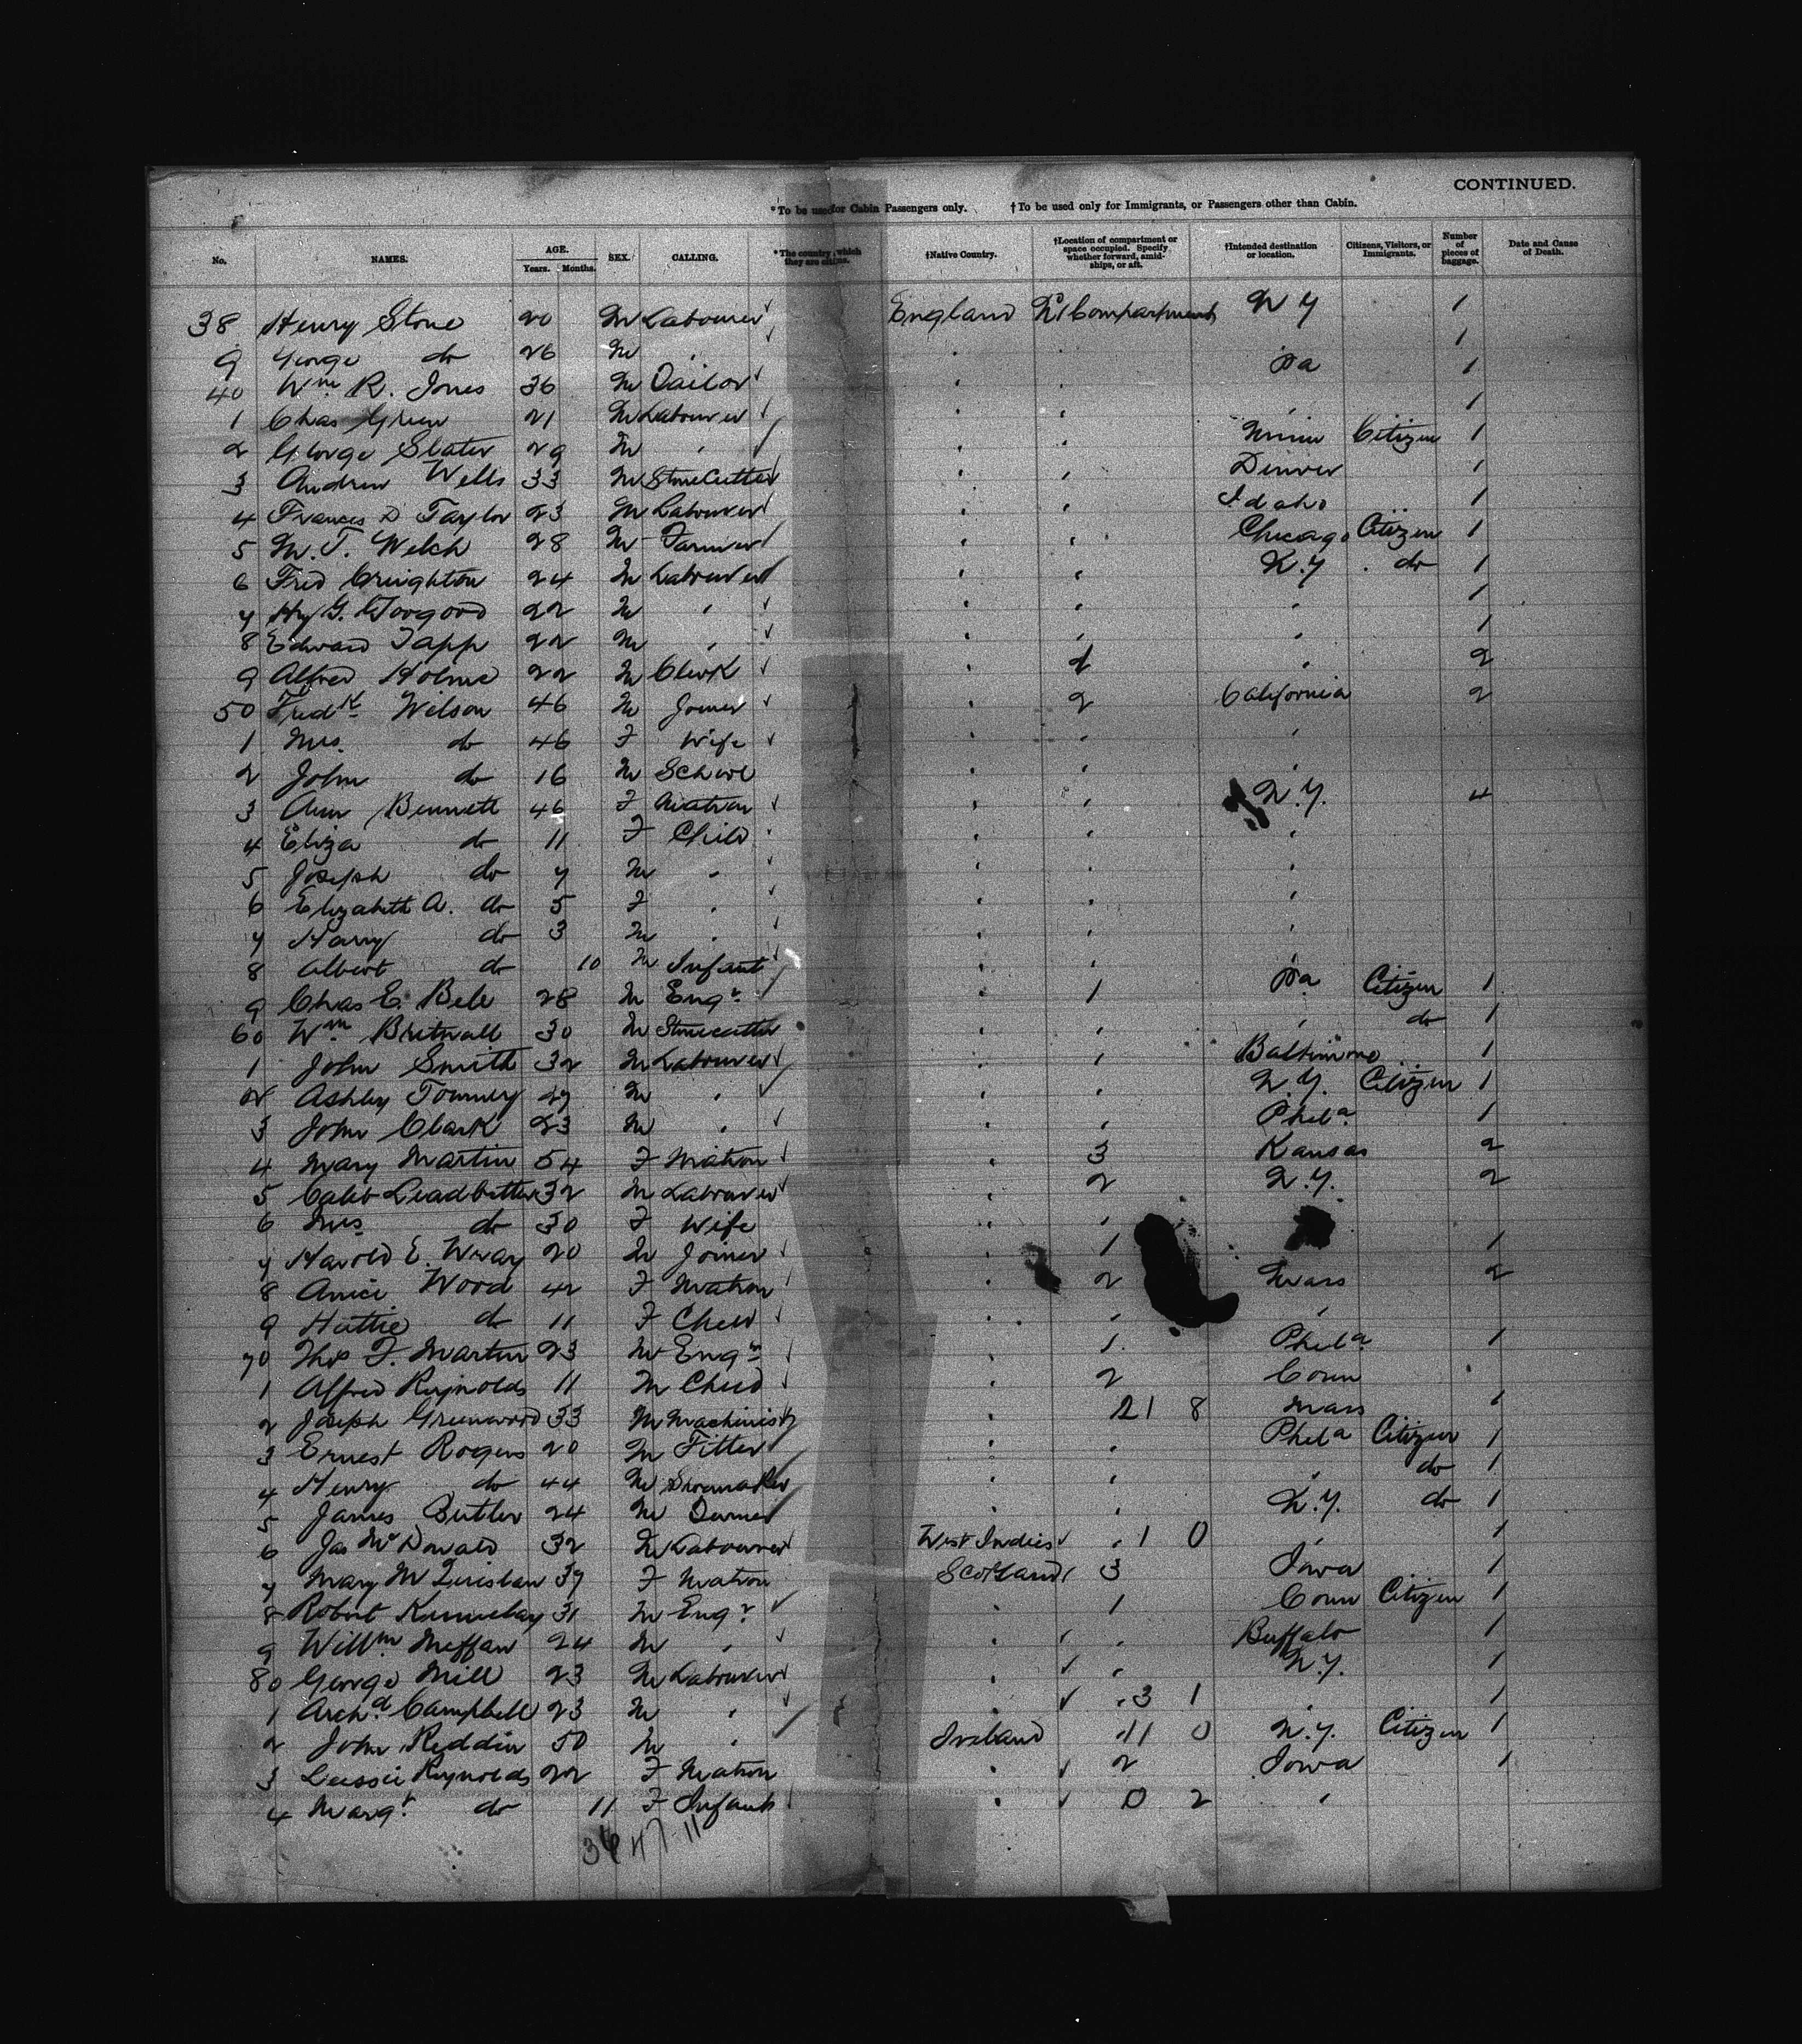 CONTINUED.
*To be used for Cabin Passengers only. †To be used only for Immigrants, or Passengers other than Cabin.
No. NAMES. AGE. Years. Months. SEX. CALLING. *The country which they are citizens. †Native Country. †Location of compartment or space occupied. Specify whether forward, amidships, or aft. †Intended destination or location. Citizens, Visitors, or Immigrants. Number of pieces of baggage. Date and Cause of Death.
38 Henry Stone 20 M Labourer England No 1 Compartment N Y 1
9 George do 26 M 1
40 Wm R. Jones 36 M Pa 1
1 Chas Green 21 M Labourer 1
2 George Slater 29 M Minn Citizen 1
3 Andrew Wells 33 M Stonecutter Denver 1
4 Frances D Taylor 23 M Labourer Idaho 1
5 M. T. Welch 28 M Farmer Chicago Citizen 1
6 Fred Creighton 24 M Labourer N.Y do 1
7 Hy G. Toogood 22 M 1
8 Edward Tapp 22 M 1
9 Alfred Holme 22 M Clerk 2
50 Fredk Wilson 46 M Joiner 2 California 2
1 Mrs. do 46 F Wife
2 John do 16 M School
3 Ann Bennett 46 F Matron N.Y. 4
4 Eliza do 11 F Child
5 Joseph do 7 M
6 Elizabeth A. do 5 F
7 Harry do 3 M
8 Albert do 10 M Infant
9 Chas E. Bell 28 M Engr 1 Pa Citizen 1
60 Wm Bretnall 30 M Stonecutter do 1
1 John Smith 32 M Labourer Baltimore 1
2 Ashley M N.Y. Citizen 1
3 John Clark 23 M Phila 1
4 Mary Martin 54 F Matron 3 Kansas 2
5 Caleb Leadbitter 32 M Labourer 2 N.Y. 2
6 Mrs do 30 F Wife
7 Harold E. Wray 20 M Joiner 1 1
8 Wood 42 F Matron 2 Mass 2
9 Hattie do 11 F Child
70 Thos F. Martin 23 M Engr 1 Phila 1
1 Alfred Reynolds 11 M Child 2 Conn
2 Joseph Greenwood 33 M Machinist 21 8 Mass 1
3 Ernest Rogers 20 M Fitter Phila Citizen 1
4 Henry do 44 M Shoemaker do 1
5 James Butler 24 M N.Y. do 1
6 Jas McDonald 32 M Labourer West Indies 1 0 1
7 Mary 39 F Matron Scotland 3 Iowa 1
8 Robert 31 M Engr 1 Conn Citizen 1
9 Willm Meffan 24 M Buffalo 1
80 George Mill 23 M Labourer N.Y. 1
1 Archd Campbell 23 M 3 1 1
2 John Reddin 50 M Ireland 11 0 N.Y. Citizen 1
3 Reynolds 22 F Matron 2 Iowa 1
4 Margt do 11 F Infant 0 2
36 47 11